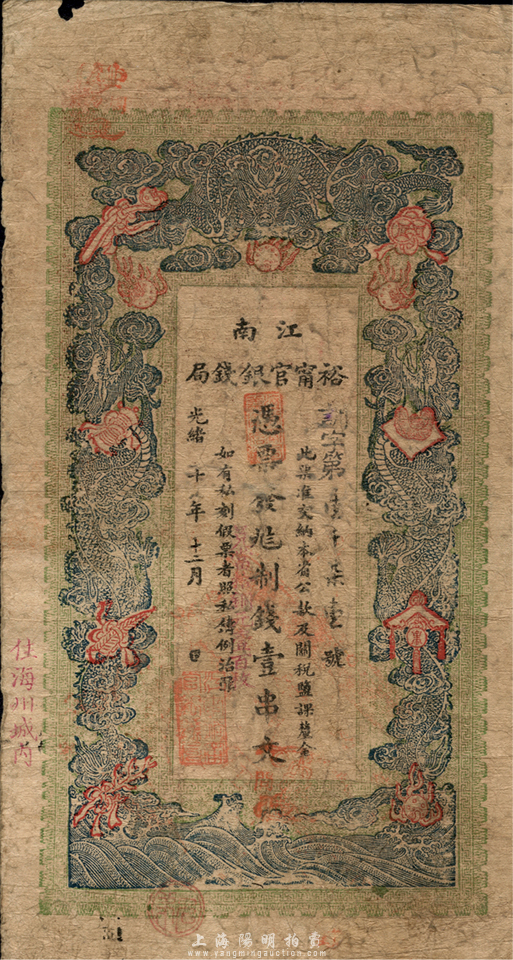 江南
裕甯官銀錢局
字第壹千柒壹號
此票准交納本省公款及關稅鹽課釐金
憑票發兌制錢壹串文
如有私刻假票者照私鑄例治罪
光緒 十 年 十二月 日
住海州城內
上海陽明拍賣
www.yangmingauction.com